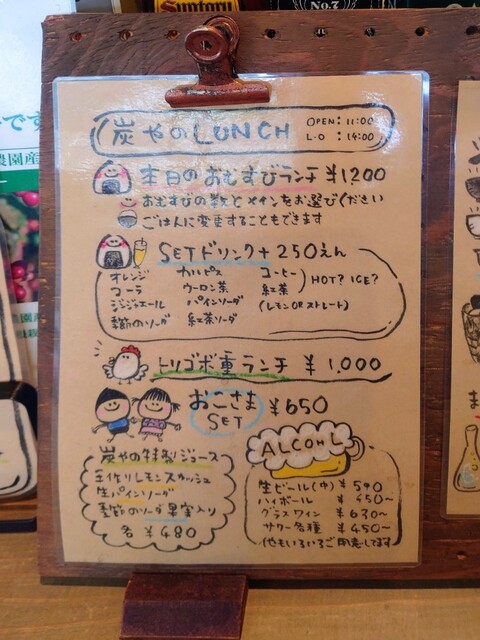 Suntory
No.7
です
農園産
炭やのLUNCH
OPEN: 11:00
L.O : 14:00
本日のおむすびランチ ¥1,200
おむすびの数とメインをお選びください
ごはんに変更することもできます
SETドリンク+250えん
オレンジ カルピス コーヒー
コーラ ウーロン茶 紅茶 HOT? ICE?
ジンジャエール パインソーダ (レモンORストレート)
季節のソーダ 紅茶ソーダ
トリゴボ重ランチ ¥1,000
おこさま SET ¥650
炭やの特製ジュース
手作りレモンスカッシュ
生パインソーダ
季節のソーダ果実入り
各 ¥480
ALCOHL
生ビール(中) ¥590
ハイボール ¥450~
グラスワイン ¥630~
サワー各種 ¥450~
他もいろいろご用意してます